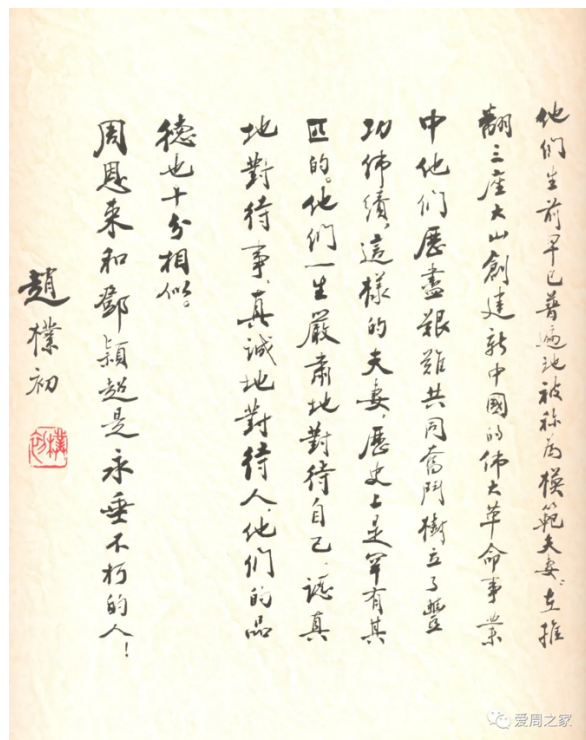 他們生前早已普遍地被称為模範夫妻。在推
翻三座大山創建新中國的偉大革命事業
中他們歷盡艱難共同奮鬥樹立了豐
功偉績，這樣的夫妻，歷史上是罕有其
匹的。他們一生嚴肅地對待自己、認真
地對待事、真誠地對待人，他們的品
德也十分相似。
周恩来和鄧穎超是永垂不朽的人！
趙樸初
樸初
爱周之家